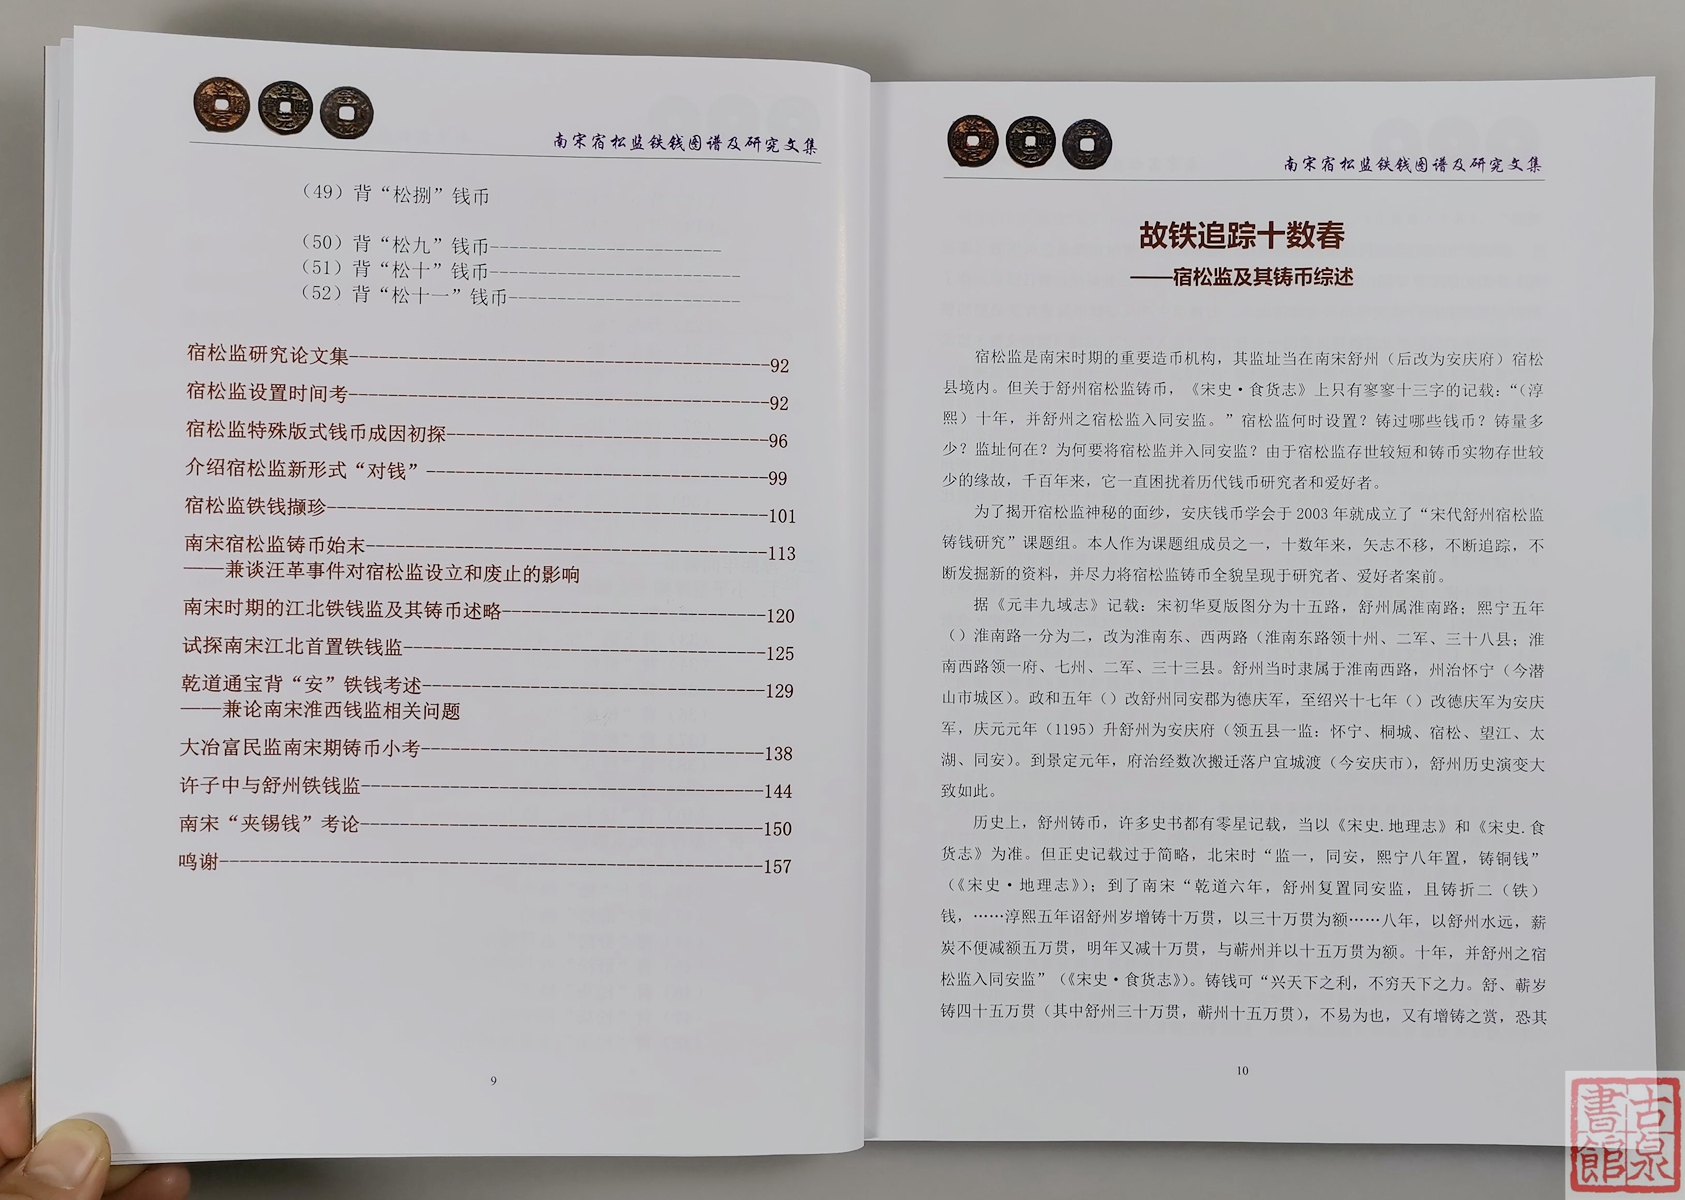 南宋宿松监铁钱图谱及研究文集
（49）背“松捌”钱币
（50）背“松九”钱币------------------------
（51）背“松十”钱币--------------------------
（52）背“松十一”钱币------------------------
宿松监研究论文集------------------------------------------92
宿松监设置时间考------------------------------------------92
宿松监特殊版式钱币成因初探--------------------------------96
介绍宿松监新形式“对钱”----------------------------------99
宿松监铁钱撷珍--------------------------------------------101
南宋宿松监铸币始末----------------------------------------113
——兼谈汪革事件对宿松监设立和废止的影响
南宋时期的江北铁钱监及其铸币述略--------------------------120
试探南宋江北首置铁钱监------------------------------------125
乾道通宝背“安”铁钱考述----------------------------------129
——兼论南宋淮西钱监相关问题
大冶富民监南宋期铸币小考----------------------------------138
许子中与舒州铁钱监----------------------------------------144
南宋“夹锡钱”考论----------------------------------------150
鸣谢------------------------------------------------------157
9
南宋宿松监铁钱图谱及研究文集
故铁追踪十数春
——宿松监及其铸币综述
宿松监是南宋时期的重要造币机构，其监址当在南宋舒州（后改为安庆府）宿松
县境内。但关于舒州宿松监铸币，《宋史·食货志》上只有寥寥十三字的记载：“（淳
熙）十年，并舒州之宿松监入同安监。”宿松监何时设置？铸过哪些钱币？铸量多
少？监址何在？为何要将宿松监并入同安监？由于宿松监存世较短和铸币实物存世较
少的缘故，千百年来，它一直困扰着历代钱币研究者和爱好者。
为了揭开宿松监神秘的面纱，安庆钱币学会于2003年就成立了“宋代舒州宿松监
铸钱研究”课题组。本人作为课题组成员之一，十数年来，矢志不移，不断追踪，不
断发掘新的资料，并尽力将宿松监铸币全貌呈现于研究者、爱好者案前。
据《元丰九域志》记载：宋初华夏版图分为十五路，舒州属淮南路；熙宁五年
（）淮南路一分为二，改为淮南东、西两路（淮南东路领十州、二军、三十八县；淮
南西路领一府、七州、二军、三十三县。舒州当时隶属于淮南西路，州治怀宁（今潜
山市城区）。政和五年（）改舒州同安郡为德庆军，至绍兴十七年（）改德庆军为安庆
军，庆元元年（1195）升舒州为安庆府（领五县一监：怀宁、桐城、宿松、望江、太
湖、同安）。到景定元年，府治经数次搬迁落户宜城渡（今安庆市），舒州历史演变大
致如此。
历史上，舒州铸币，许多史书都有零星记载，当以《宋史.地理志》和《宋史.食
货志》为准。但正史记载过于简略，北宋时“监一，同安，熙宁八年置，铸铜钱”
（《宋史·地理志》）；到了南宋“乾道六年，舒州复置同安监，且铸折二（铁）
钱，……淳熙五年诏舒州岁增铸十万贯，以三十万贯为额……八年，以舒州水远，薪
炭不便减额五万贯，明年又减十万贯，与蕲州并以十五万贯为额。十年，并舒州之宿
松监入同安监”（《宋史·食货志》）。铸钱可“兴天下之利，不穷天下之力。舒、蕲岁
铸四十五万贯（其中舒州三十万贯，蕲州十五万贯），不易为也，又有增铸之赏，恐其
10
古泉
書館